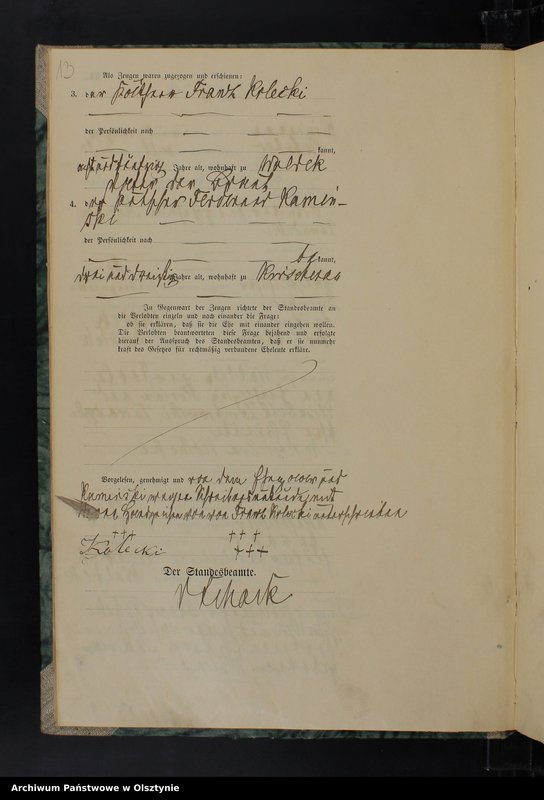 13
Als Zeugen waren zugezogen und erschienen:
3. der Käthner Franz Kolecki
der Persönlichkeit nach
kannt,
Jahre alt, wohnhaft zu Waldek
4. der Käthner Ferdinand Kamin-
ski
der Persönlichkeit nach
be kannt,
drei und dreißig Jahre alt, wohnhaft zu
In Gegenwart der Zeugen richtete der Standesbeamte an
die Verlobten einzeln und nach einander die Frage:
ob sie erklären, daß sie die Ehe mit einander eingehen wollen.
Die Verlobten beantworteten diese Frage bejahend und erfolgte
hierauf der Ausspruch des Standesbeamten, daß er sie nunmehr
kraft des Gesetzes für rechtmäßig verbundene Eheleute erkläre.
Vorgelesen, genehmigt und von dem Ehepaar und
Kaminski wegen Schreibensunkunde mit
ihren Handzeichen von Franz Kolecki unterschrieben
+++ +++
Kolecki +++
Der Standesbeamte.
Archiwum Państwowe w Olsztynie